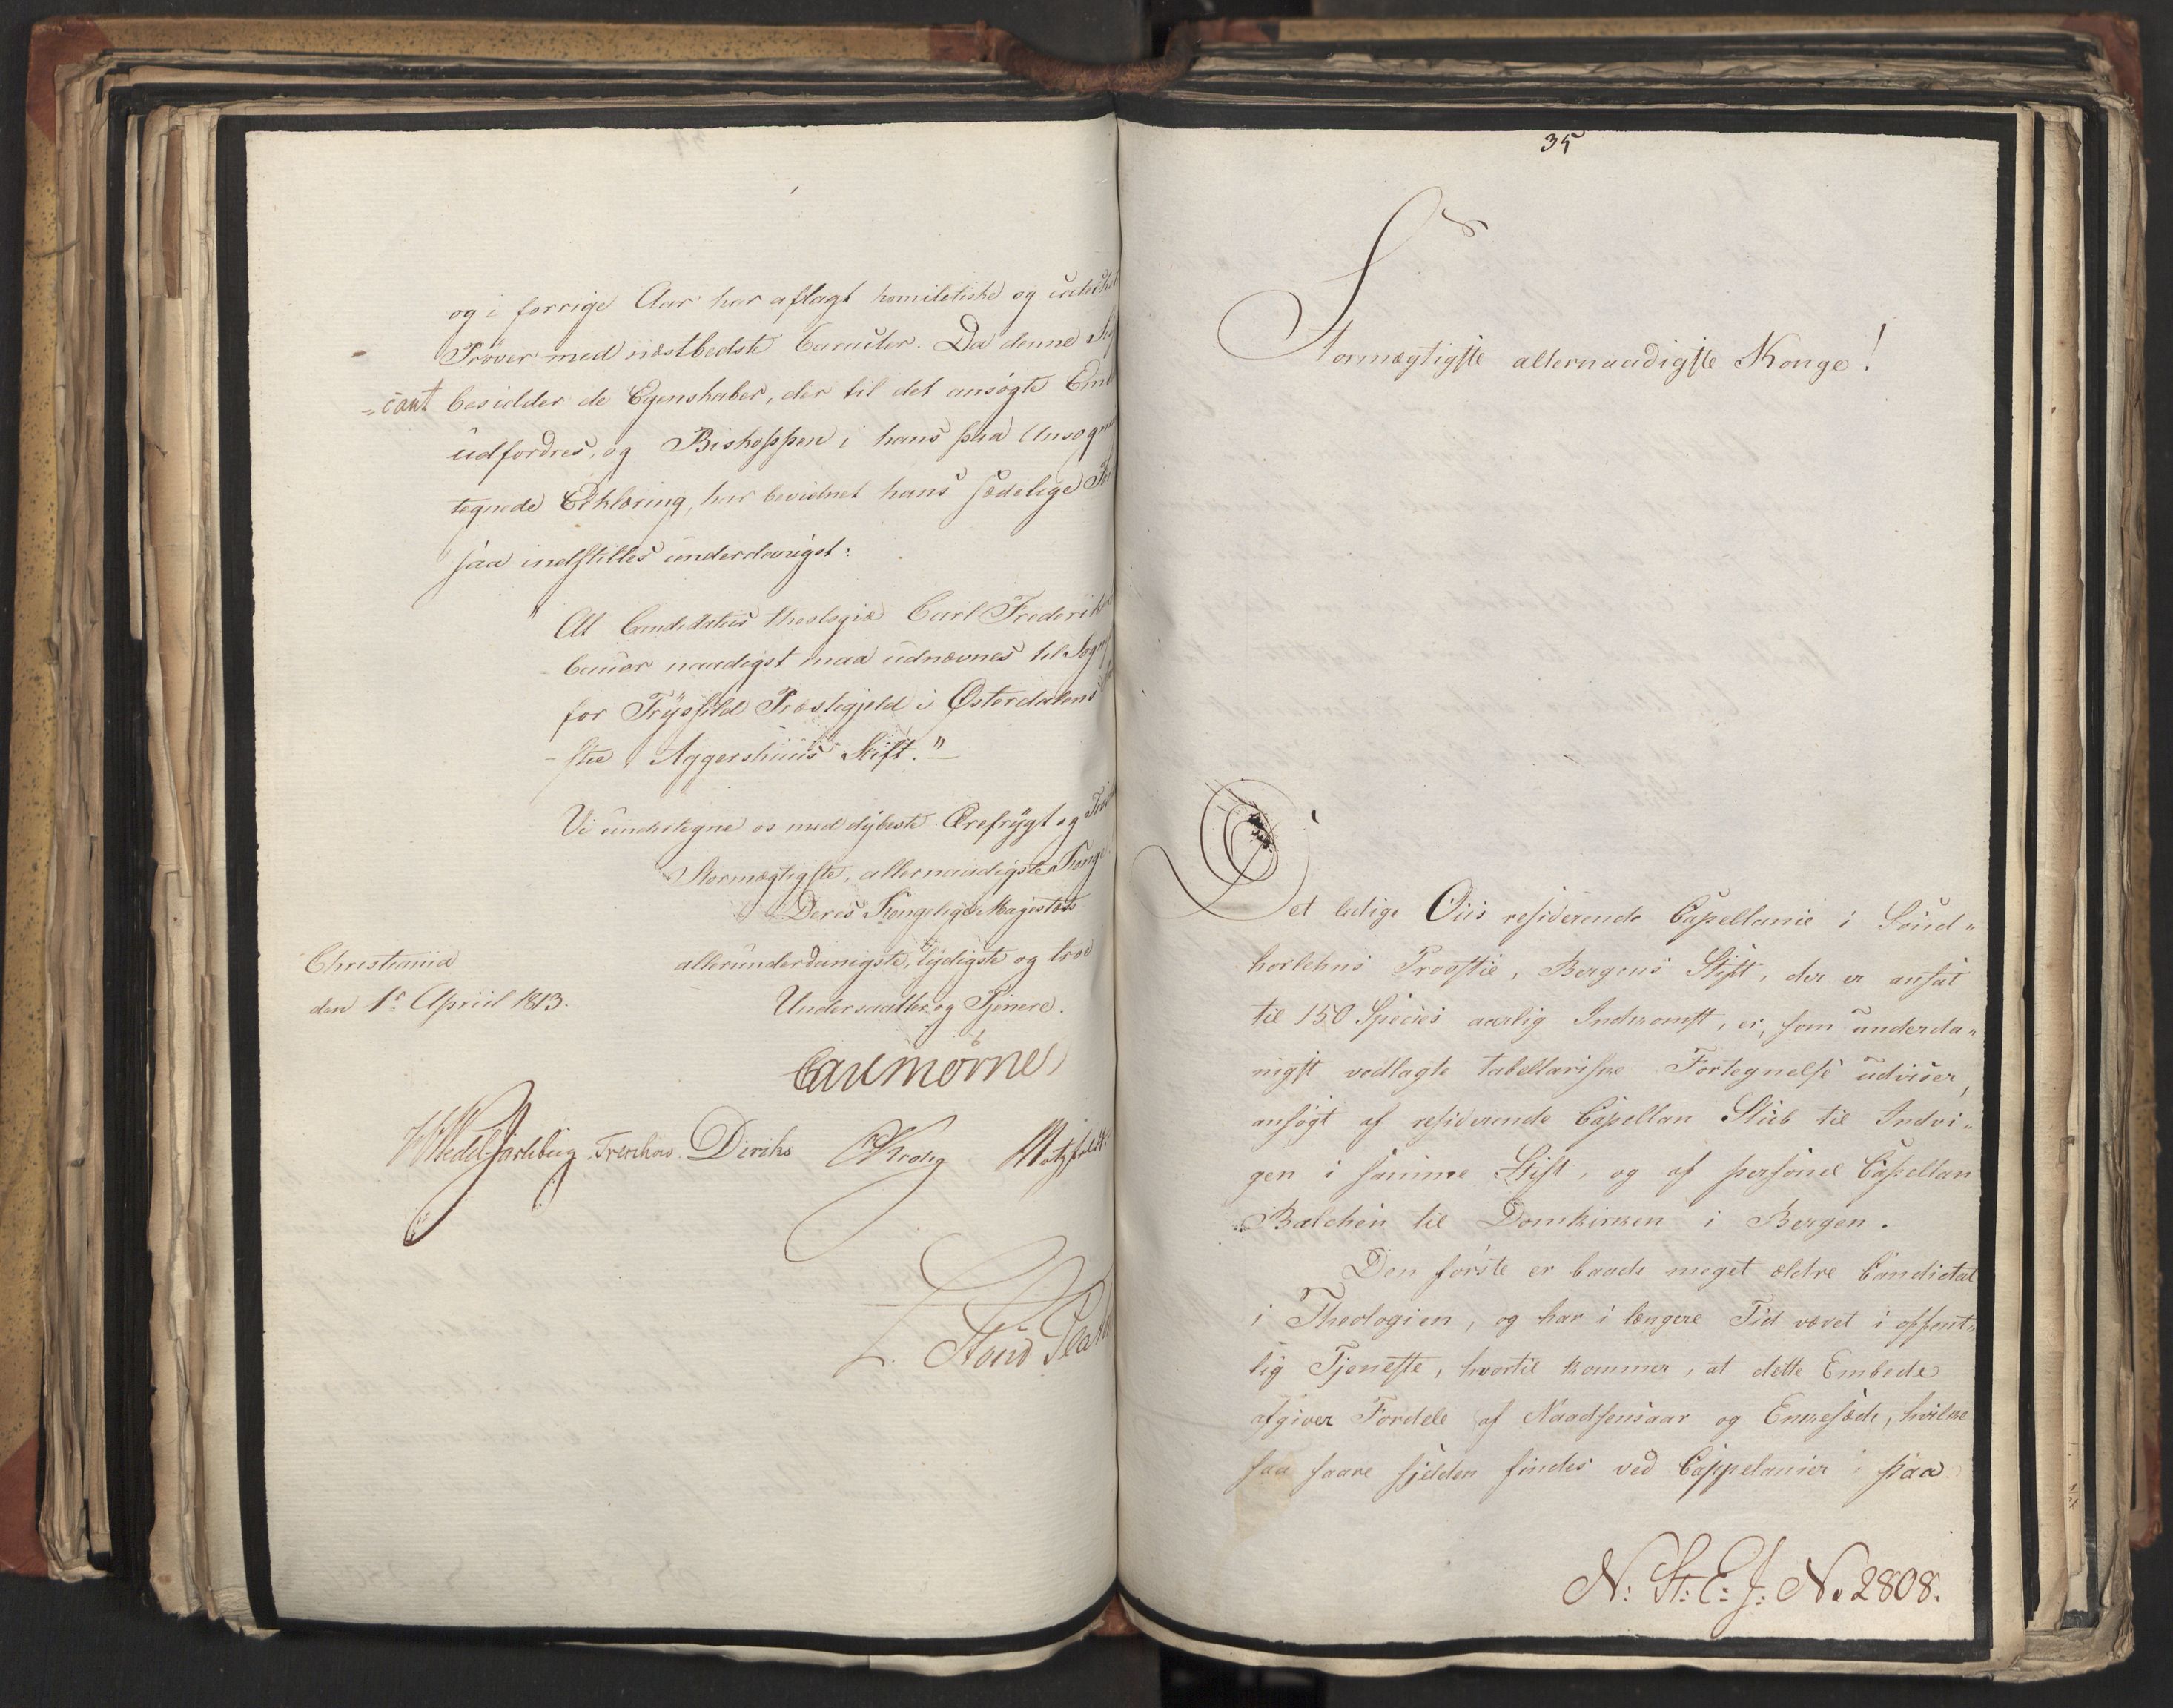 og i forrige Aar har aflagt homiletiske og
Prøver med næstbedste Caracter. Da denne
-cant besidder de Egenskaber, der til det ansøgte Emb
udfordres, og Biskoppen i hans paa Ansøgn
tegnede Erklæring, har bevidnet hans sædelige
saa indstilles underdanigst:
" At Candidatus theologiæ Carl Frederik
naadigst maa udnævnes til Sogn
for Trysild Præstegjeld i Østerdalens
-stie Aggershuus Stift."
Vi undertegne os med dybeste Ærefrygt og
Stormægtigste, allernaadigste Konge
Deres Kongelige Majestæts
Christiania allerunderdanigste, lydigste og troe
den 1r Apriil 1813. Undersaatter og Tjenere.
Carl Mörner
Wedel Jarlsberg Treschow Diriks Krohg Motzfeldt
L. Stoud Plat
35
Stormægtigste allernaadigste Konge!
Det ledige Oiis residerende Capellanie i Sønd"
horlehns Proostie, Bergens Stift, der er ansat
til 150 Species aarlig Indkomst, er, som underda"
nigst vedlagte tabellariske Fortegnelse udviser,
ansøgt af residerende Capellan Stub til Indvi"
gen i samme Stift, og af personel Capellan
Balchen til Domkirken i Bergen.
Den første er baade meget ældre Candidat
i Theologien, og har i længere Tid været i offent"
lig Tjeneste, hvortil kommer, at dette Embede
afgiver Fordele af Naadsensaar og Enkesæde, hvilke
saa saare sjelden findes ved Cappelanier paa
N: St: E: J: No 2808.